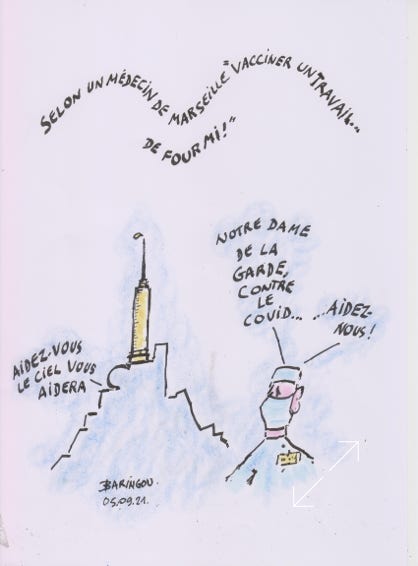 SELON UN MÉDECIN DE MARSEILLE "VACCINER UN TRAVAIL...
DE FOURMI!"
NOTRE DAME
DE LA
GARDE,
CONTRE
LE
COVID...
...AIDEZ-
NOUS!
AIDEZ-VOUS
LE CIEL VOUS
AIDERA
BARINGOU.
05.09.21.